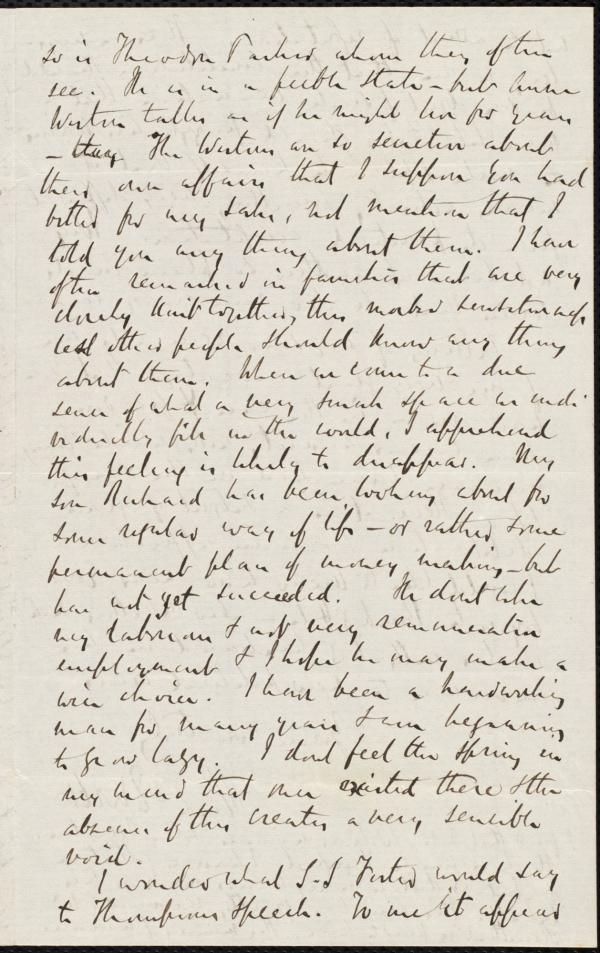 so is Theodore Parker whom they often
see. He is in a feeble state – but Anne
Weston talks as if he might live for years
– The Westons are so secretive about
their own affairs that I suppose you had
better for my sake, not mention that I
told you any thing about them. I have
often remarked in families that are very
closely knit together, this morbid sensitiveness
lest other people should know any thing
about them. When we come to a due
sense of what a very small space we indi
vidually fill in the world, I apprehend
this feeling is likely to disappear. My
son Richard has been looking about for
some regular way of life – or rather some
permanent plan of money making – but
has not yet succeeded. He dont like
my laborious & not very remunerative
employment & I hope he may make a
wise choice. I have been a hardworking
man for many years & am beginning
to grow lazy. I dont feel the spring in
my mind that once existed there & the
absence of this creates a very sensible
void.
I wonder what S.S Foster would say
to Thompsons speech. To me it appears